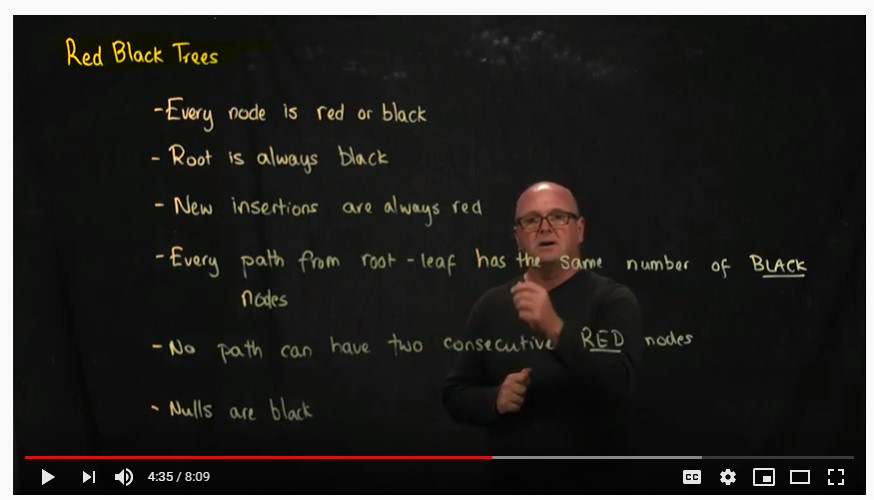 Red Black Trees
- Every node is red or black
- Root is always black
- New insertions are always red
- Every path from root - leaf has the same number of BLACK
nodes
- No path can have two consecutive RED nodes
- Nulls are black
4:35 / 8:09
CC